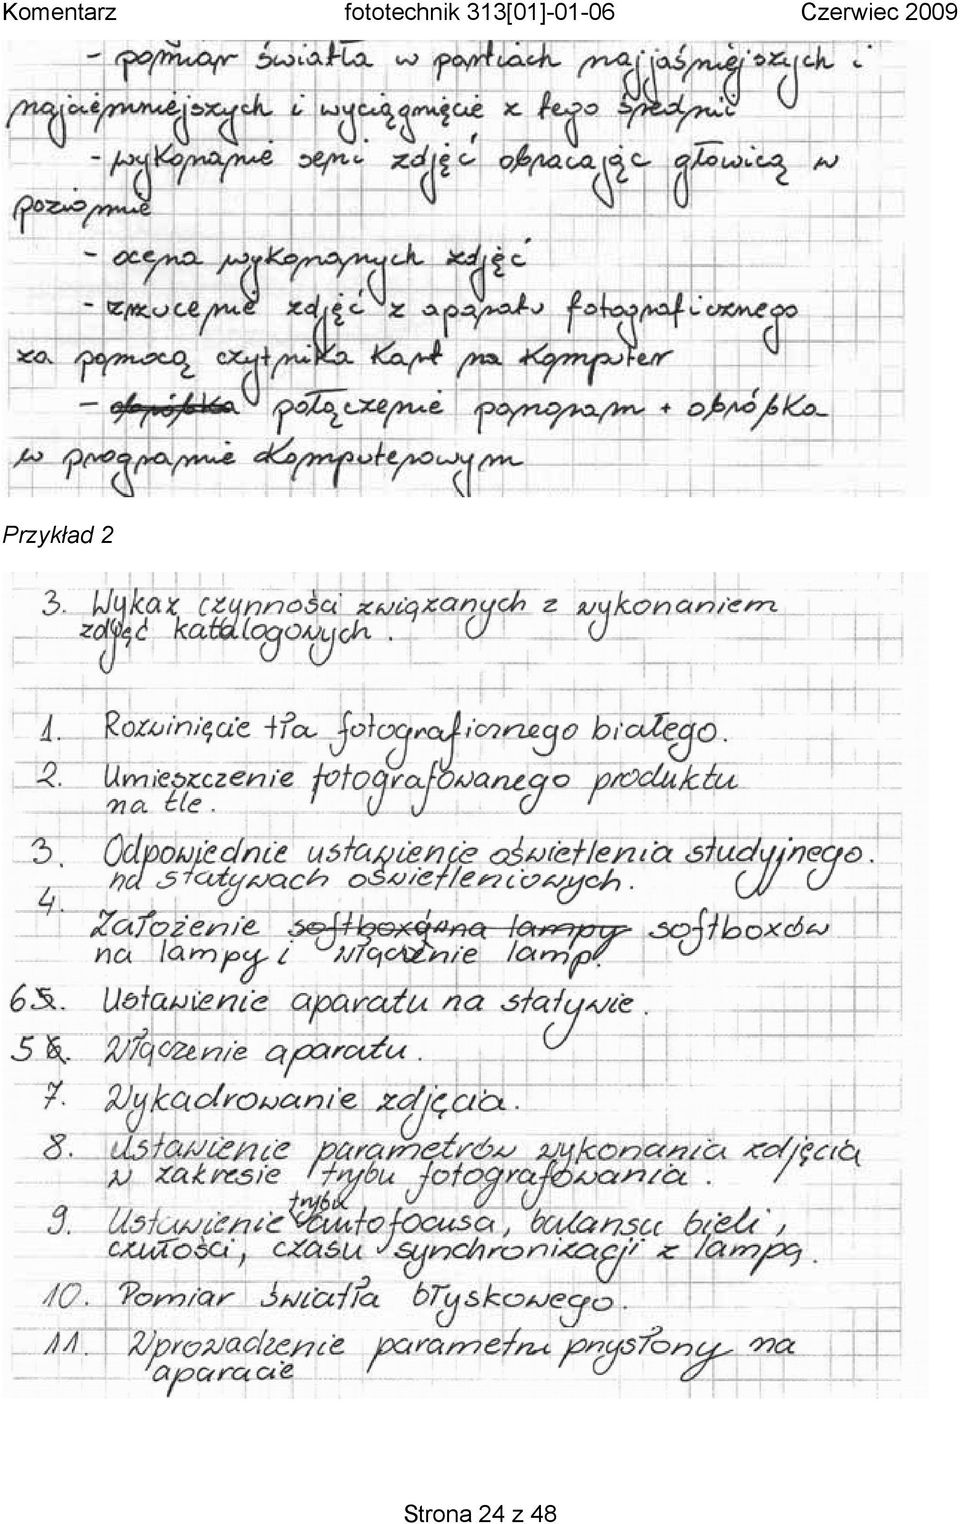 Komentarz fototechnik 313[01]-01-06 Czerwiec 2009
- pomiar światła w partiach najjaśniejszych i
najciemniejszych i wyciągnięcie z tego średnii
- wykonanie serii zdjęć obracając głowicą w
poziomie
- ocena wykonanych zdjęć
- zrzucenie zdjęć z aparatu fotograficznego
za pomocą czytnika kart na komputer
- obróbka połączenie panoram + obróbka
w programie komputerowym
Przykład 2
3. Wykaz czynności związanych z wykonaniem
zdjęć katalogowych.
1. Rozwinięcie tła fotograficznego białego.
2. Umieszczenie fotografowanego produktu
na tle.
3. Odpowiednie ustawienie oświetlenia studyjnego.
na statywach oświetleniowych.
4.
Założenie softboxów na lampy softboxów
na lampy i włączenie lamp.
6 5. Ustawienie aparatu na statywie.
5 6. Włączenie aparatu.
7. Wykadrowanie zdjęcia.
8. Ustawienie parametrów wykonania zdjęcia
w zakresie trybu fotografowania.
trybu
9. Ustawienie autofocusa, balansu bieli,
czułości, czasu synchronizacji z lampą.
10. Pomiar światła błyskowego.
11. Wprowadzenie parametru przysłony na
aparacie
Strona 24 z 48